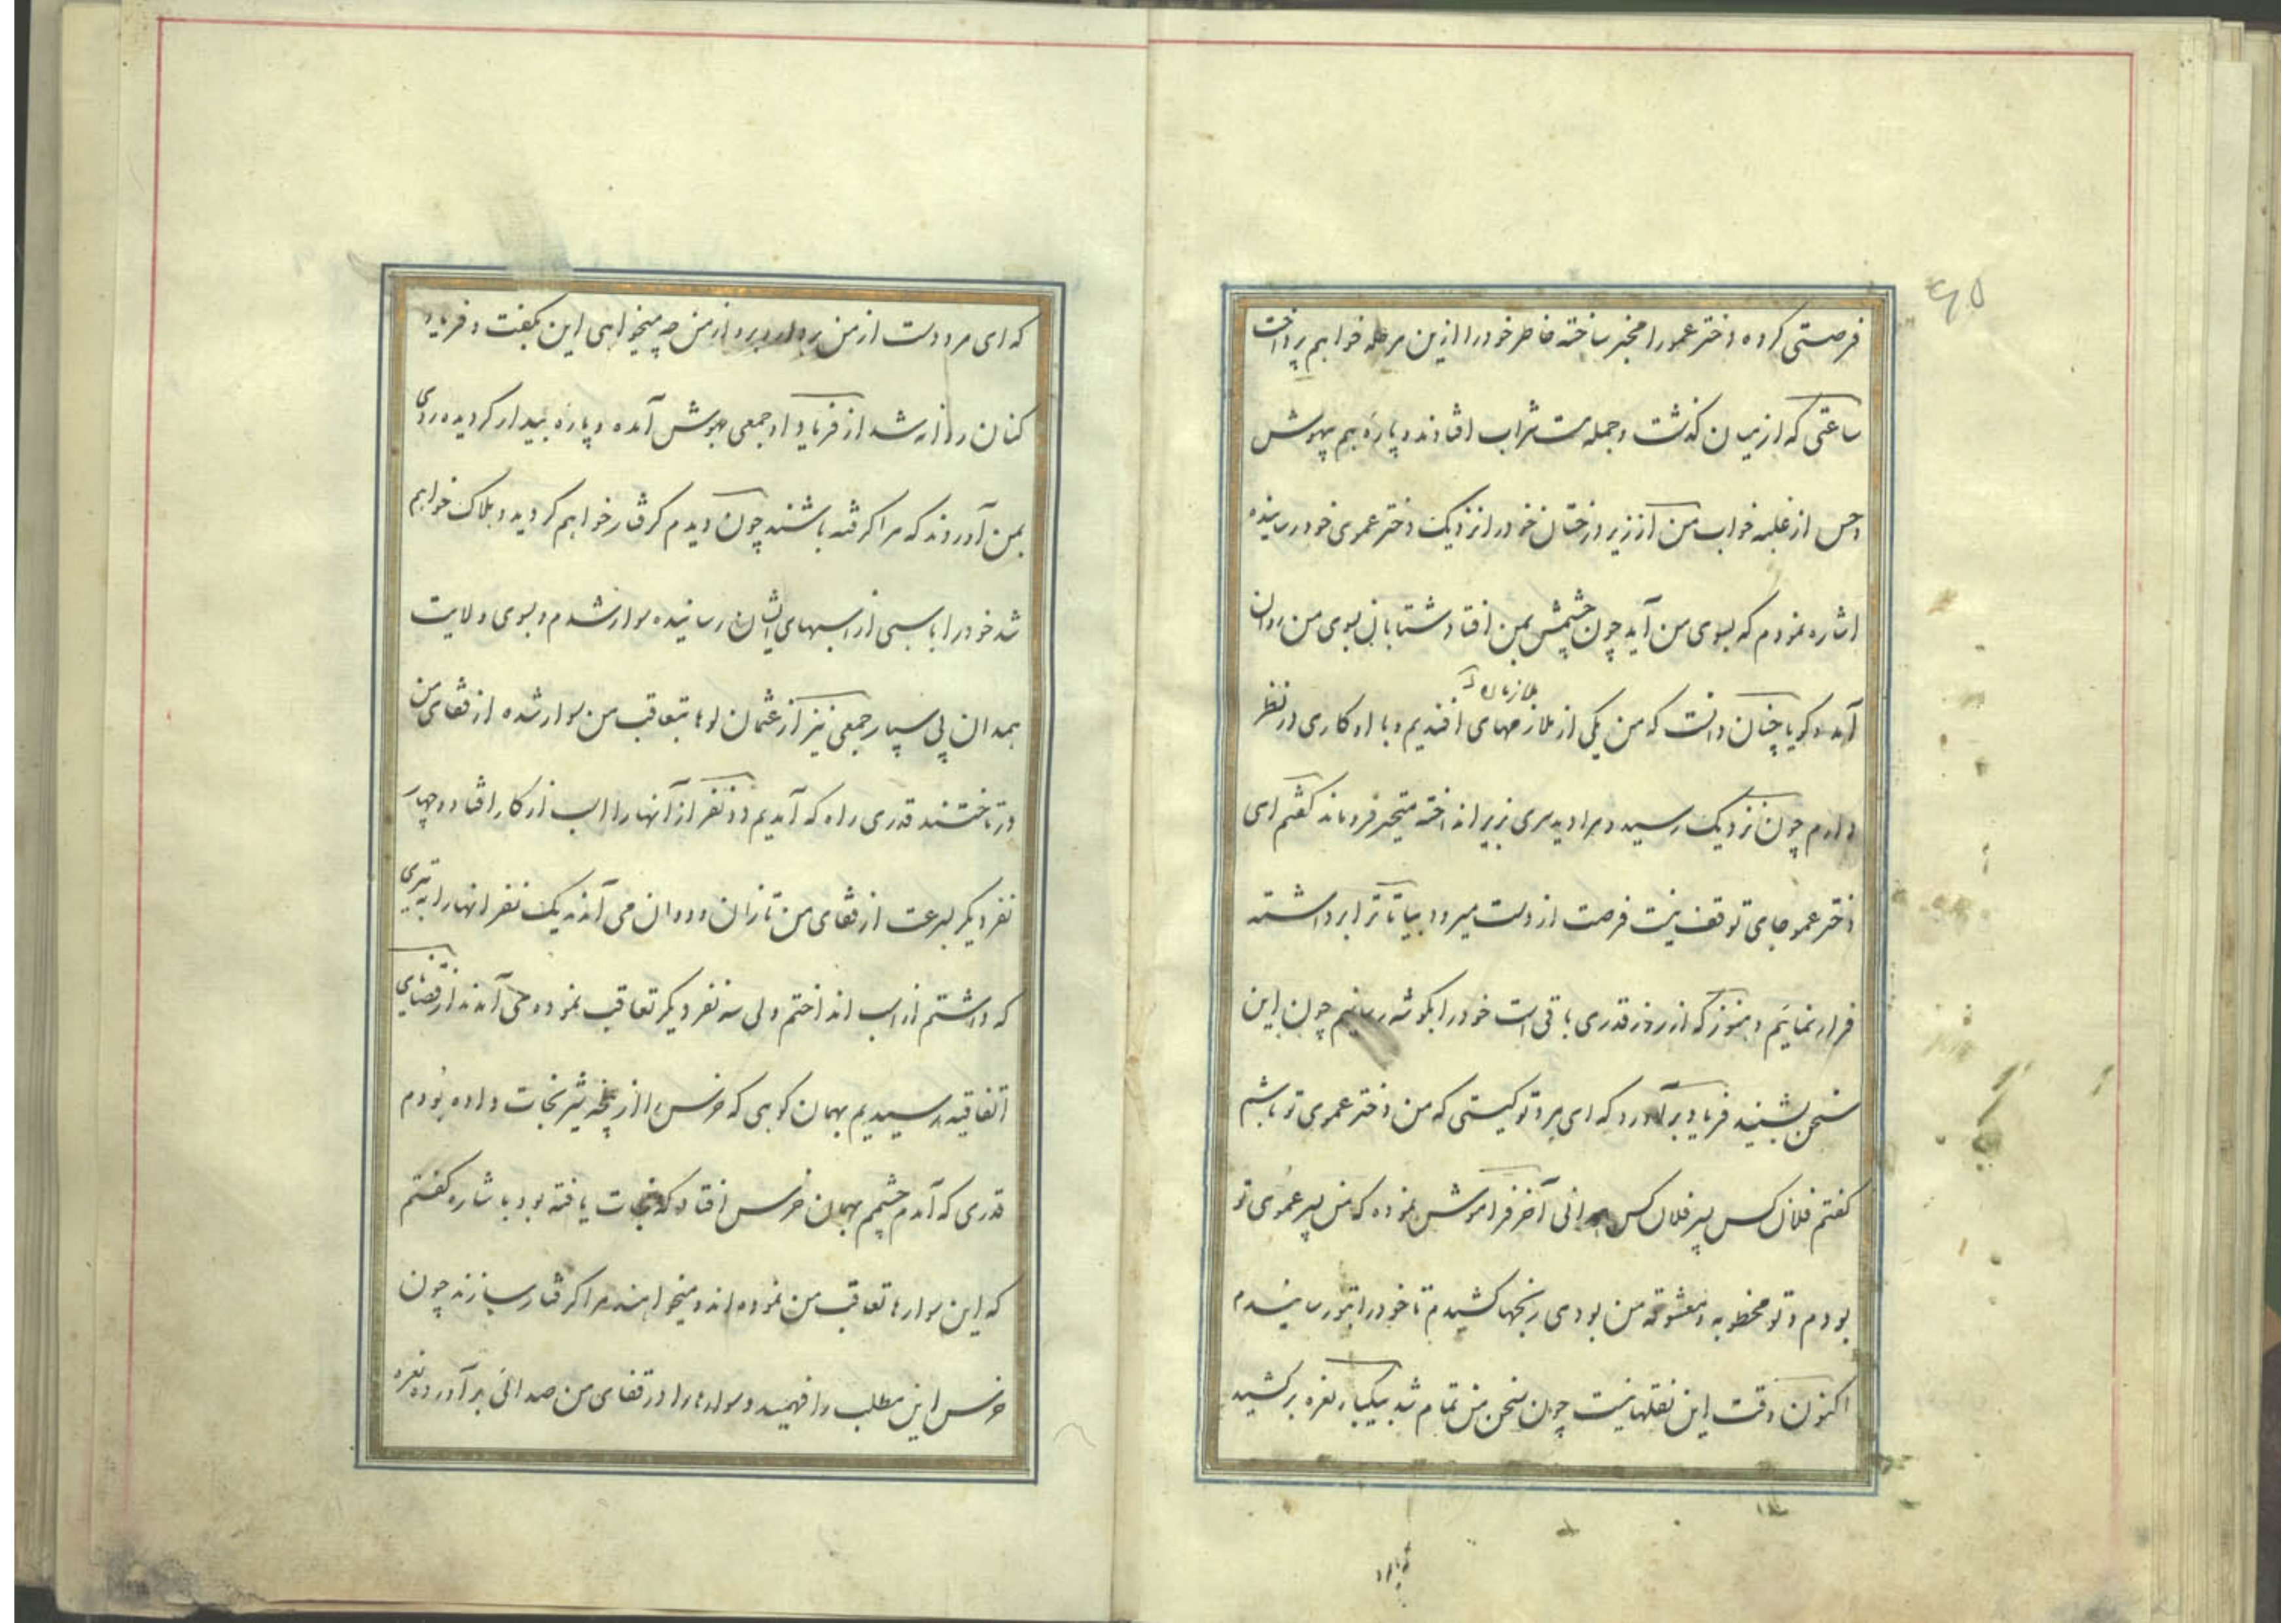 ۶۵
فرصتی کرده دختر عمو را مخبر ساخته خاطر خود را ازین مرحله خواهم پرداخت
ساعتی که از میان گذشت و جمله مست شراب افتادند و پارهٔ هم بیهوش
و حس از غلبه خواب من از زیر درختان خود را نزدیک دختر عموی خود رسانیده
اشاره نمودم که بسوی من آید چون چشمش بمن افتاد شتابان بسوی من روان
آمد و گویا چنان دانست که من یکی از ملازمهای افندیم و با او کاری در نظر
دارم چون نزدیک رسید و مرا دید سری بزیر انداخته متحیر فرو ماند گفتم ای
دختر عمو جای توقف نیست فرصت از دست میرود بیا تا ترا برداشته
فرار نمائیم و هنوز که از روز قدری باقی است خود را بگوشه رسانیم چون این
سخن بشنید فریاد برآورد که ای مرد تو کیستی که من دختر عموی تو باشم
گفتم فلان کس پسر فلان کس همدانی آخر فراموش نموده که من پسر عموی تو
بودم و تو مخطوبه و معشوقه من بودی رنجها کشیدم تا خود را بتو رسانیدم
اکنون وقت این نقلها نیست چون سخن من تمام شد بیکبار نعره برکشید
که ای مرد دست از من بردار و برو از من چه میخواهی این بگفت و فریاد
کنان روانه شد از فریاد او جمعی بهوش آمده و پاره بیدار گردیده روی
بمن آوردند که مرا گرفته باشند چون دیدم گرفتار خواهم گردید و هلاک خواهم
شد خود را باسبی از اسبهای ایشان رسانیده سوار شدم و بسوی ولایت
همدان پی سپار جمعی نیز از عثمان لوها بتعاقب من سوار شده از قفای من
در تاختند قدری راه که آمدیم دو نفر از آنها را اسب از کار افتاد و چهار
نفر دیگر بسرعت از قفای من تازان و دوان می آمدند یک نفر انها را به تیری
که داشتم از اسب انداختم ولی سه نفر دیگر تعاقب نموده می آمدند از قضای
اتفاقیه رسیدیم بهمان کوهی که خرس را از پنجه شیر نجات داده بودم
قدری که آمدم چشمم بهمان خرس افتاد که نجات یافته بود با شاره گفتم
که این سوارها تعاقب من نموده اند و میخواهند مرا گرفتار سازند چون
خرس این مطلب را فهمید و سوارها را در قفای من صدائی برآورده نعره